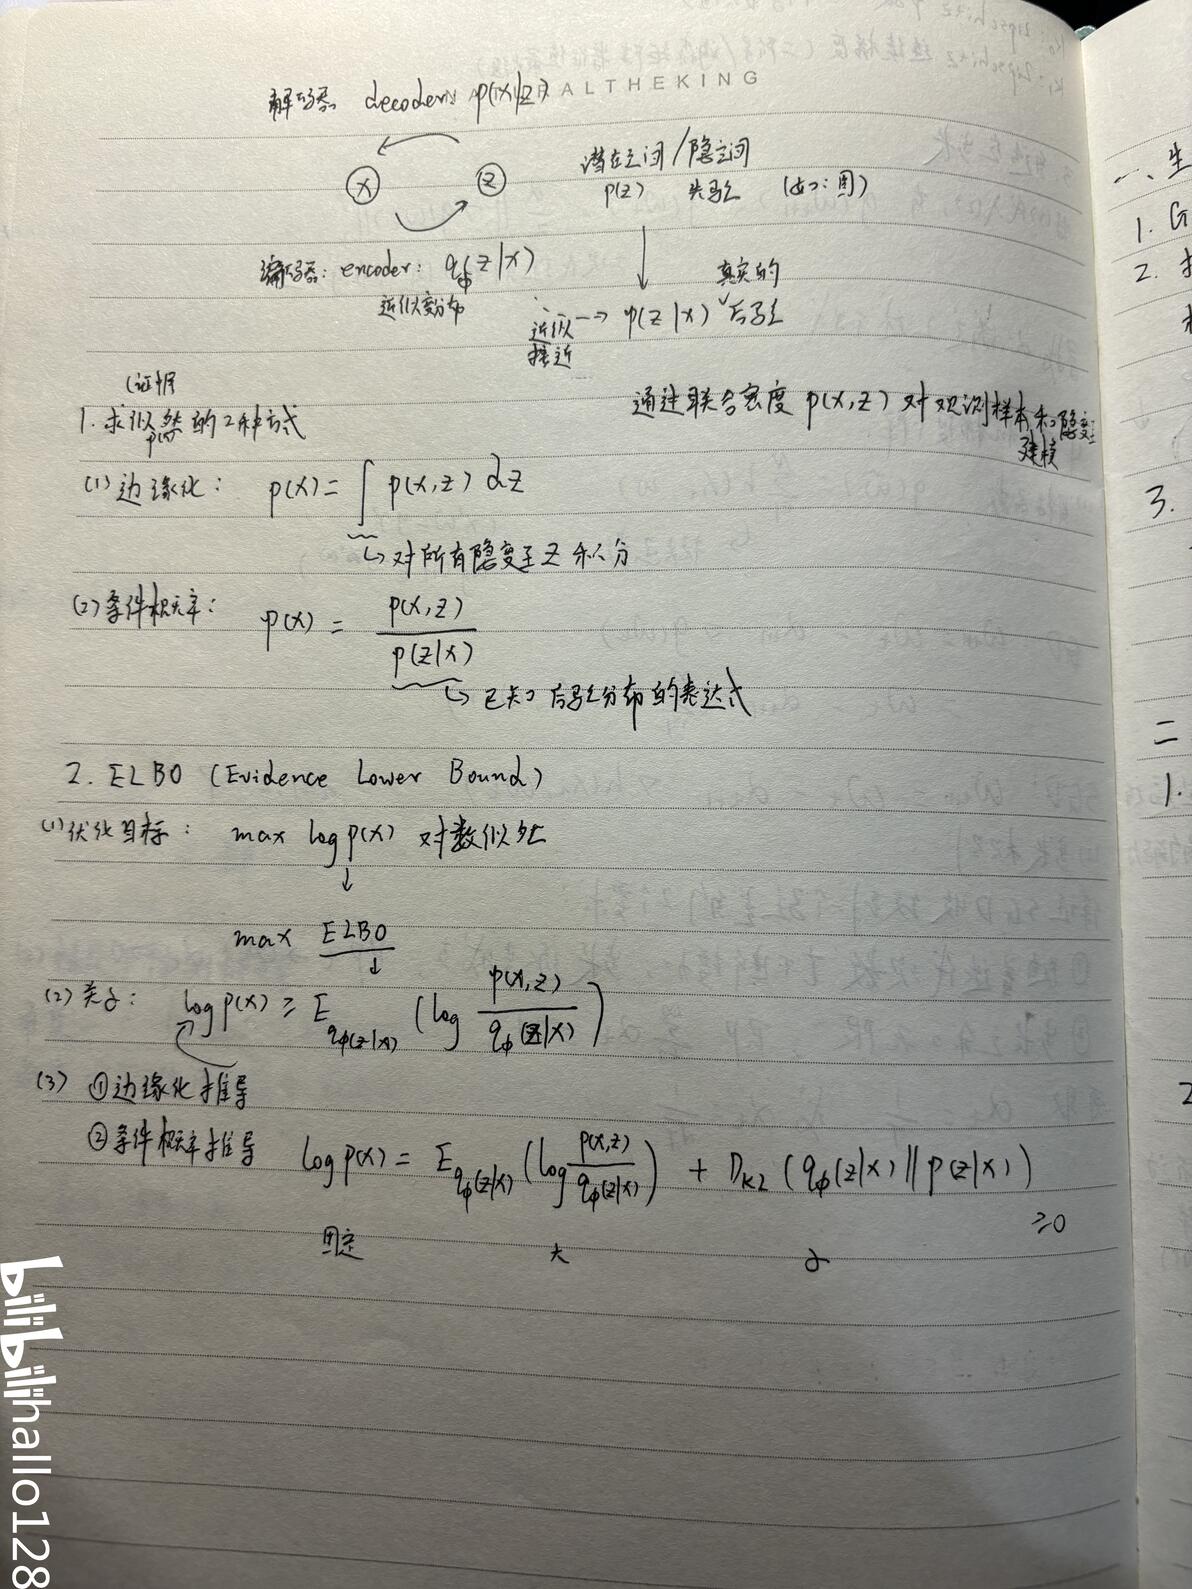 解码器 decoder: p(x|z)
ALTHEKING
潜在空间/隐空间
x z
p(z) 先验 (如:图)
编码器: encoder: qφ(z|x)
近似分布
真实的
近似 → p(z|x) 后验
接近
(证据)
1. 求似然的2种方式
p(x)
通过联合密度 p(x,z) 对观测样本和隐变量
建模
(1) 边缘化: p(x) = ∫ p(x,z) dz
↳ 对所有隐变量 z 积分
(2) 条件概率: p(x) = p(x,z) / p(z|x)
↳ 已知后验分布的表达式
2. ELBO (Evidence Lower Bound)
(1) 优化目标: max log p(x) 对数似然
↓
max ELBO
↓
(2) 关系: log p(x) ≥ E_{qφ(z|x)} (log p(x,z) / qφ(z|x))
(3) ① 边缘化推导
② 条件概率推导 log p(x) = E_{qφ(z|x)} (log p(x,z) / qφ(z|x)) + D_{KL} (qφ(z|x) || p(z|x))
≥0
固定 大 小
一、生
1. G
2.
3.
二
1.
2
bilibili hallo128